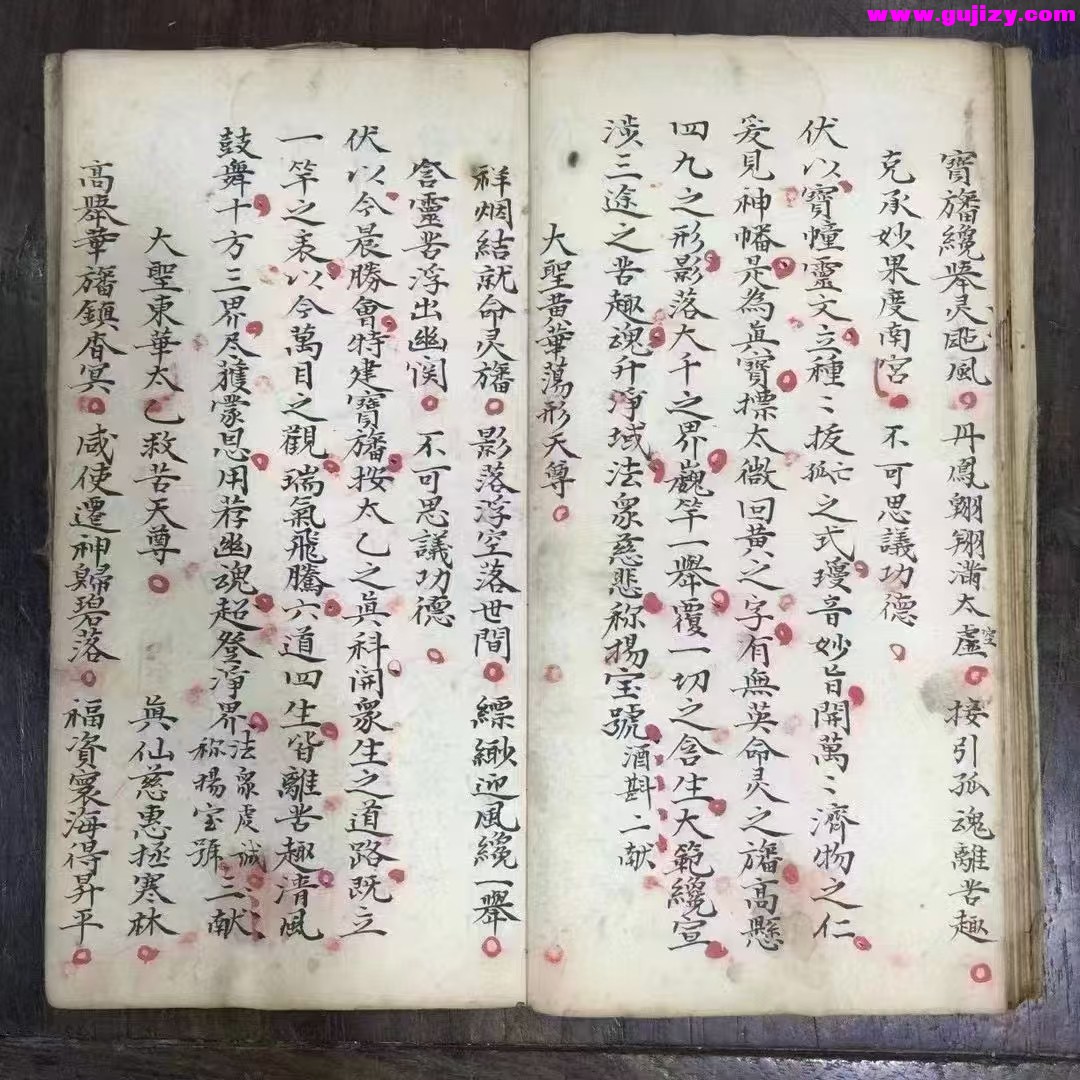 www.gujizy.com
寳旛纔舉灵飈風丹鳳翱翔滿太虛空接引孤魂離苦趣
克承妙果度南宮不可思議功德
伏以寳幢靈文立種〻拔孤亡之式瓊音妙旨開萬〻濟物之仁
爰見神幡是為眞寳摽太微回黄之字有無英命灵之旛高懸
四九之形影落大千之界巍竿一舉覆一切之含生大範纔宣
涉三途之苦趣魂升淨域法眾慈悲称揚宝號酒斟二献
大聖黄華蕩形天尊
祥烟結就命灵旛影落浮空落世間縹緲迎風纔一舉
含靈苦浮出幽関不可思議功德
伏以今晨勝會特建寳旛按太乙之眞科開眾生之道路既立
一竿之表以令萬目之觀瑞氣飛騰六道四生皆離苦趣清風
鼓舞十方三界尽獲蒙恩用荐幽魂超登淨界法眾虔诚称揚宝號三献
大聖東華太乙救苦天尊眞仙慈惠拯寒林
高舉華旛鎮杳冥咸使遷神歸碧落福資寰海得昇平